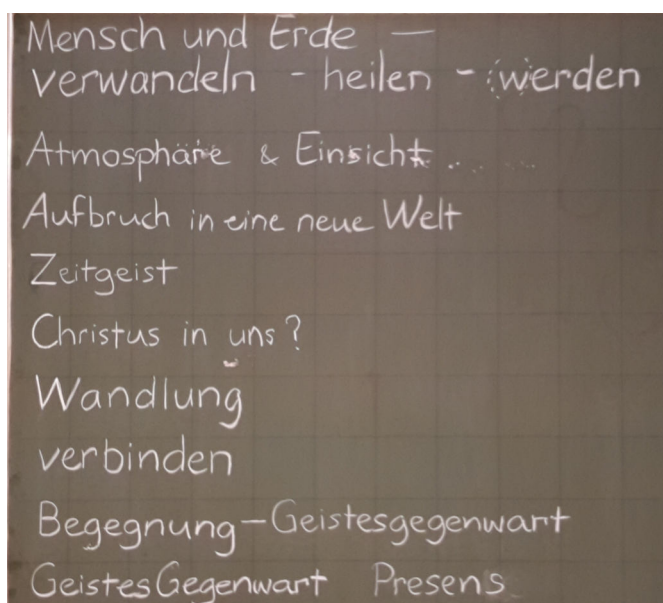 Mensch und Erde —
verwandeln - heilen - werden
Atmosphäre & Einsicht
Aufbruch in eine neue Welt
Zeitgeist
Christus in uns?
Wandlung
verbinden
Begegnung - Geistesgegenwart
GeistesGegenwart Presens